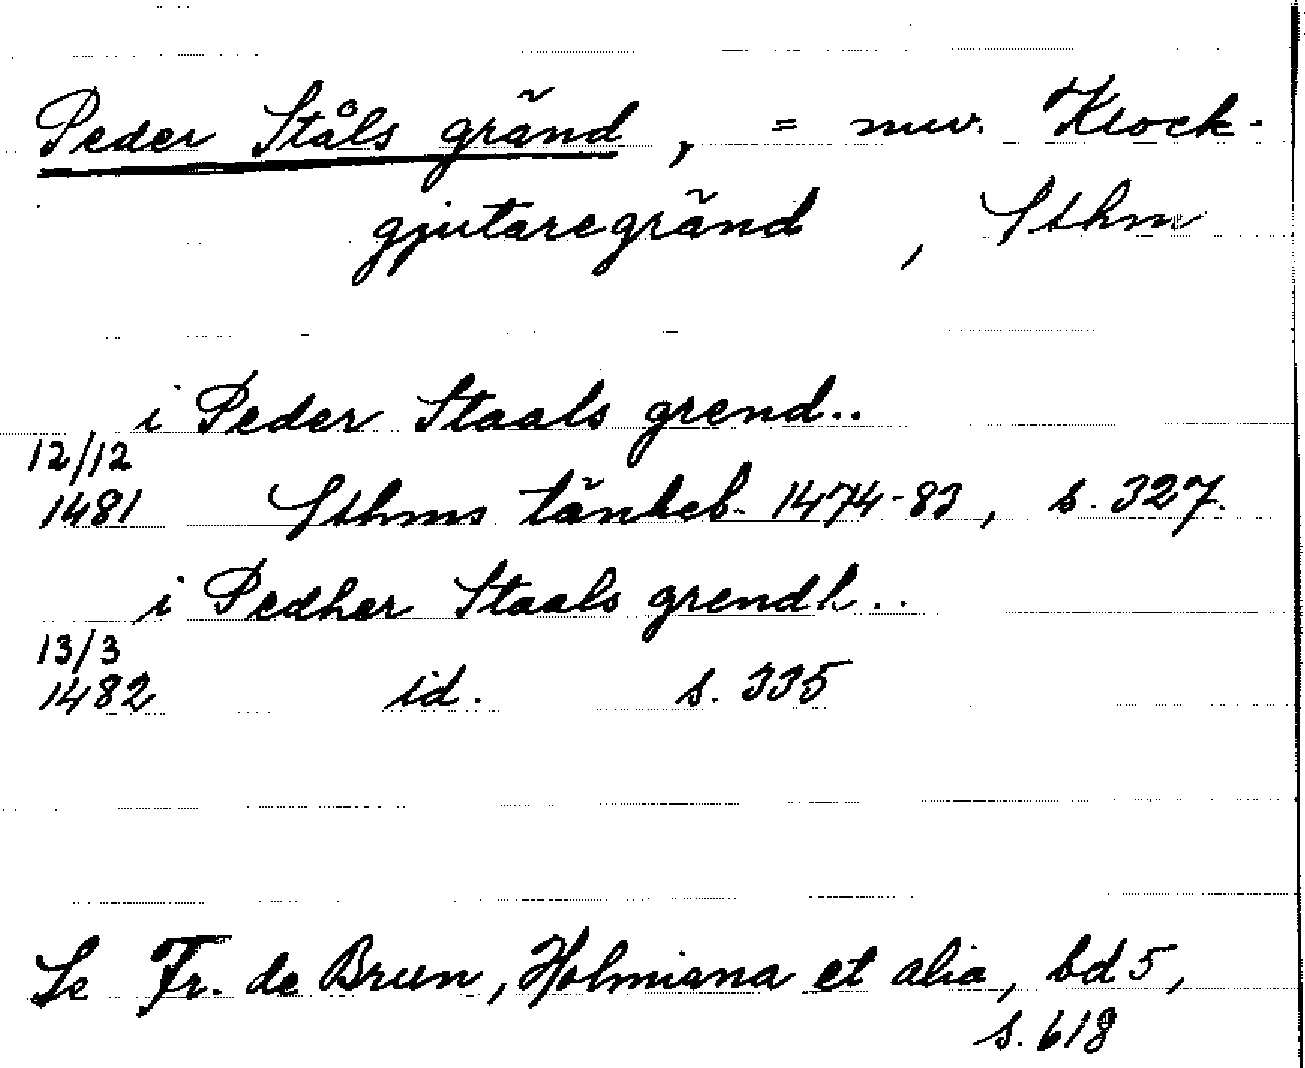 Peder Ståls gränd, = nuv. Klock-
gjutaregränd, Sthm
i Peder Staals grend..
12/12
1481 Sthms tänkeb. 1474-83, s. 327.
i Pedher Staals grendh..
13/3
1482 id. s. 335
Se Fr. de Brun, Holmiana et alia, bd 5,
s. 618